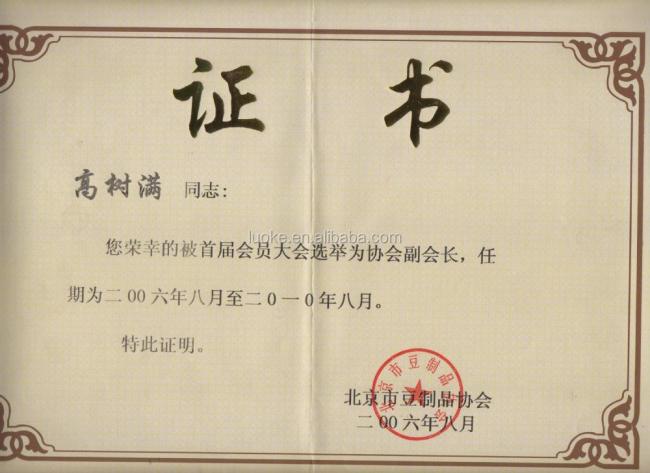 证 书
高树满 同志：
luoke.en.alibaba.com
您荣幸的被首届会员大会选举为协会副会长，任
期为二00六年八月至二0一0年八月。
特此证明。
北京市豆制品协会
北京市豆制品协会
二00六年八月